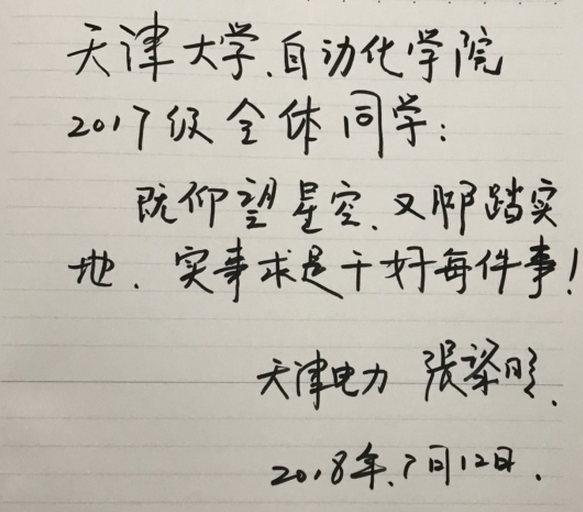 天津大学、自动化学院
2017级全体同学：
既仰望星空、又脚踏实
地．实事求是干好每件事！
天津电力 張黎明．
2018年．7月12日．